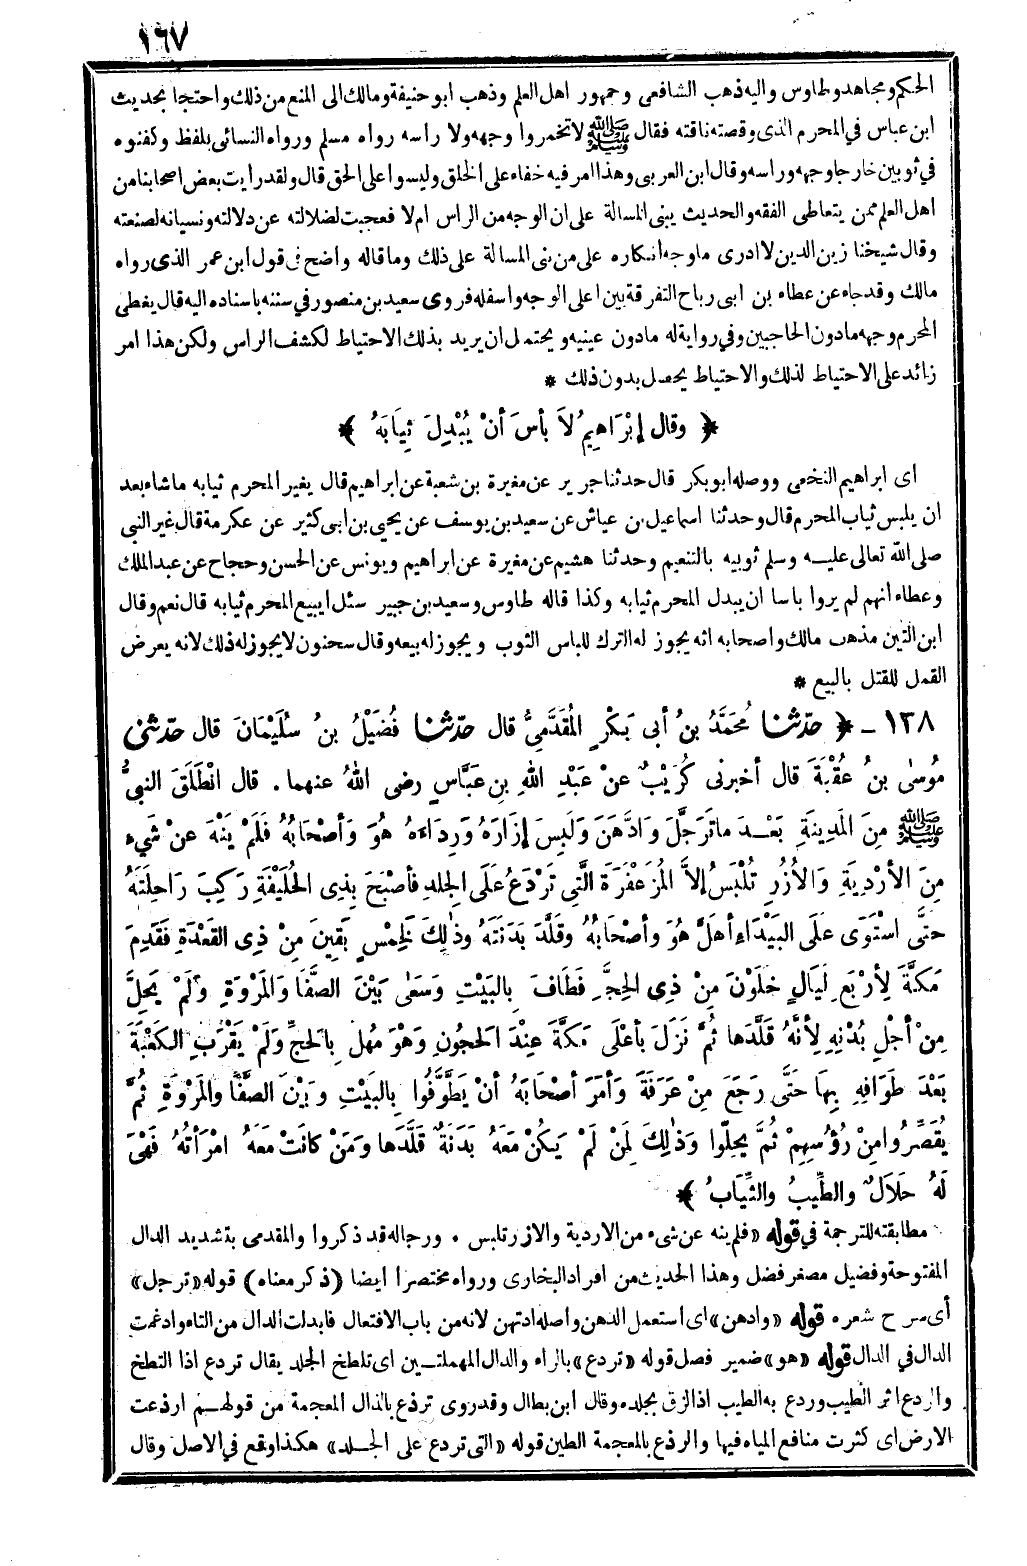 ١٦٧
الحكم ومجاهد وطاوس واليه ذهب الشافعى وجمهور اهل العلم وذهب ابو حنيفة ومالك الى المنع من ذلك واحتجا بحديث
ابن عباس في المحرم الذى وقصته ناقته فقال ﷺ لا تخمروا وجهه ولا راسه رواه مسلم ورواه النسائى بلفظ وكفنوه
في ثوبين خارجا وجهه وراسه وقال ابن العربى وهذا امر فيه خفاء على الخلق وليسوا على الحق قال ولقد رايت بعض اصحابنا من
اهل العلم ممن يتعاطى الفقه والحديث يبنى المسالة على ان الوجه من الراس ام لا فعجبت لضلالته عن دلالته ونسيانه لصنعته
وقال شيخنا زين الدين لا ادرى ما وجه انكاره على من بنى المسالة على ذلك وما قاله واضح فى قول ابن عمر الذى رواه
مالك وقد جاء عن عطاء بن ابى رباح التفرقة بين اعلى الوجه واسفله فروى سعيد بن منصور في سننه باسناده اليه قال يغطى
المحرم وجهه مادون الحاجبين وفي رواية له مادون عينيه ويحتمل ان يريد بذلك الاحتياط لكشف الراس ولكن هذا امر
زائد على الاحتياط لذلك والاحتياط يحصل بدون ذلك *
﴿ وقال إِبْرَاهِيمُ لاَ بأسَ أنْ يُبْدِلَ ثِيَابَهُ ﴾
اى ابراهيم النخعى ووصله ابو بكر قال حدثنا جرير عن مغيرة بن شعبة عن ابراهيم قال يغير المحرم ثيابه ماشاء بعد
ان يلبس ثياب المحرم قال وحدثنا اسماعيل بن عياش عن سعيد بن يوسف عن يحيى بن ابى كثير عن عكرمة قال غير النبى
صلى الله تعالى عليه وسلم ثوبيه بالتنعيم وحدثنا هشيم عن مغيرة عن ابراهيم ويونس عن الحسن وحجاج عن عبد الملك
وعطاء أنهم لم يروا باسا ان يبدل المحرم ثيابه وكذا قاله طاوس وسعيد بن جبير سئل ايبيع المحرم ثيابه قال نعم وقال
ابن التين مذهب مالك واصحابه انه يجوز له الترك للباس الثوب ويجوز له بيعه وقال سحنون لا يجوز له ذلك لانه يعرض
القمل للقتل بالبيع *
١٣٨ - ﴿ حدّثنا مُحَمَّدُ بنُ أبى بَكْرٍ المُقَدَّمِىُّ قال حدّثنا فُضَيْلُ بنُ سُلَيْمَانَ قال حدّثنى
مُوسَى بنُ عُقْبَةَ قال أخبرنى كُرَيْبٌ عنْ عَبْدِ اللهِ بنِ عَبَّاسٍ رضى اللهُ عنهما. قال انْطَلَقَ النبىُّ
ﷺ مِنَ المَدِينَةِ بَعْدَ ماتَرَجَّلَ وَادَّهَنَ وَلَبِسَ إِزَارَهُ وَرِدَاءَهُ هُوَ وَأصْحَابُهُ فَلَمْ يَنْهَ عنْ شَىءٍ
مِنَ الأَرْدِيَةِ وَالأُزُرِ تُلْبَسُ إلاَّ المُزَعْفَرَةَ الَّتِى تَرْدَعُ عَلَى الجِلْدِ فأصْبَحَ بِذِى الحُلَيْفَةِ رَكِبَ رَاحِلَتَهُ
حتَّى اسْتَوَى عَلَى البَيْدَاءِ أهَلَّ هُوَ وأصْحَابُهُ وقَلَّدَ بَدَنَتَهُ وذٰلِكَ لِخَمْسٍ بَقِينَ مِنْ ذِى القَعْدَةِ فَقَدِمَ
مَكَّةَ لِأَرْبَعِ لَيَالٍ خَلَوْنَ مِنْ ذِى الحِجَّةِ فَطَافَ بِالبَيْتِ وَسَعَى بَيْنَ الصَّفَا وَالمَرْوَةِ وَلَمْ يَحِلَّ
مِنْ أجْلِ بُدْنِهِ لِأَنَّهُ قَلَّدَها ثُمَّ نَزَلَ بأعْلَى مَكَّةَ عِنْدَ الحَجُونِ وَهْوَ مُهِلٌّ بِالحَجِّ وَلَمْ يَقْرَبِ الكَعْبَةَ
بَعْدَ طَوَافِهِ بِهَا حَتَّى رَجَعَ مِنْ عَرَفَةَ وَأمَرَ أصْحَابَهُ أنْ يَطَّوَّفُوا بِالبَيْتِ وَبَيْنَ الصَّفَا وَالمَرْوَةِ ثُمَّ
يُقَصِّرُوا مِنْ رُؤُسِهِمْ ثُمَّ يَحِلُّوا وَذٰلِكَ لِمَنْ لَمْ يَكُنْ مَعَهُ بَدَنَةٌ قَلَّدَها وَمَنْ كانَتْ مَعَهُ امْرَأَتُهُ فَهْىَ
لَهُ حَلَالٌ والطِّيبُ والثِّيَابُ ﴾
مطابقته للترجمة في قوله «فلم ينه عن شىء من الاردية والازر تلبس . ورجاله قد ذكروا والمقدمى بتشديد الدال
المفتوحة وفضيل مصغر فضل وهذا الحديث من افراد البخارى ورواه مختصرا ايضا (ذكر معناه) قوله «ترجل»
أى سرح شعره قوله «وادهن» اى استعمل الدهن واصله ادتهن لانه من باب الافتعال فابدلت الدال من التاء وادغمت
الدال في الدال قوله «هو» ضمير فصل قوله «تردع» بالراء والدال المهملتين اى تلطخ الجلد يقال تردع اذا التطخ
والردع اثر الطيب وردع به الطيب اذا لزق بجلده وقال ابن بطال وقد روى ترذع بالذال المعجمة من قولهم ارذعت
الارض اى كثرت منافع المياه فيها والرذع بالمعجمة الطين قوله «التى تردع على الجلد» هكذا وقع في الاصل وقال